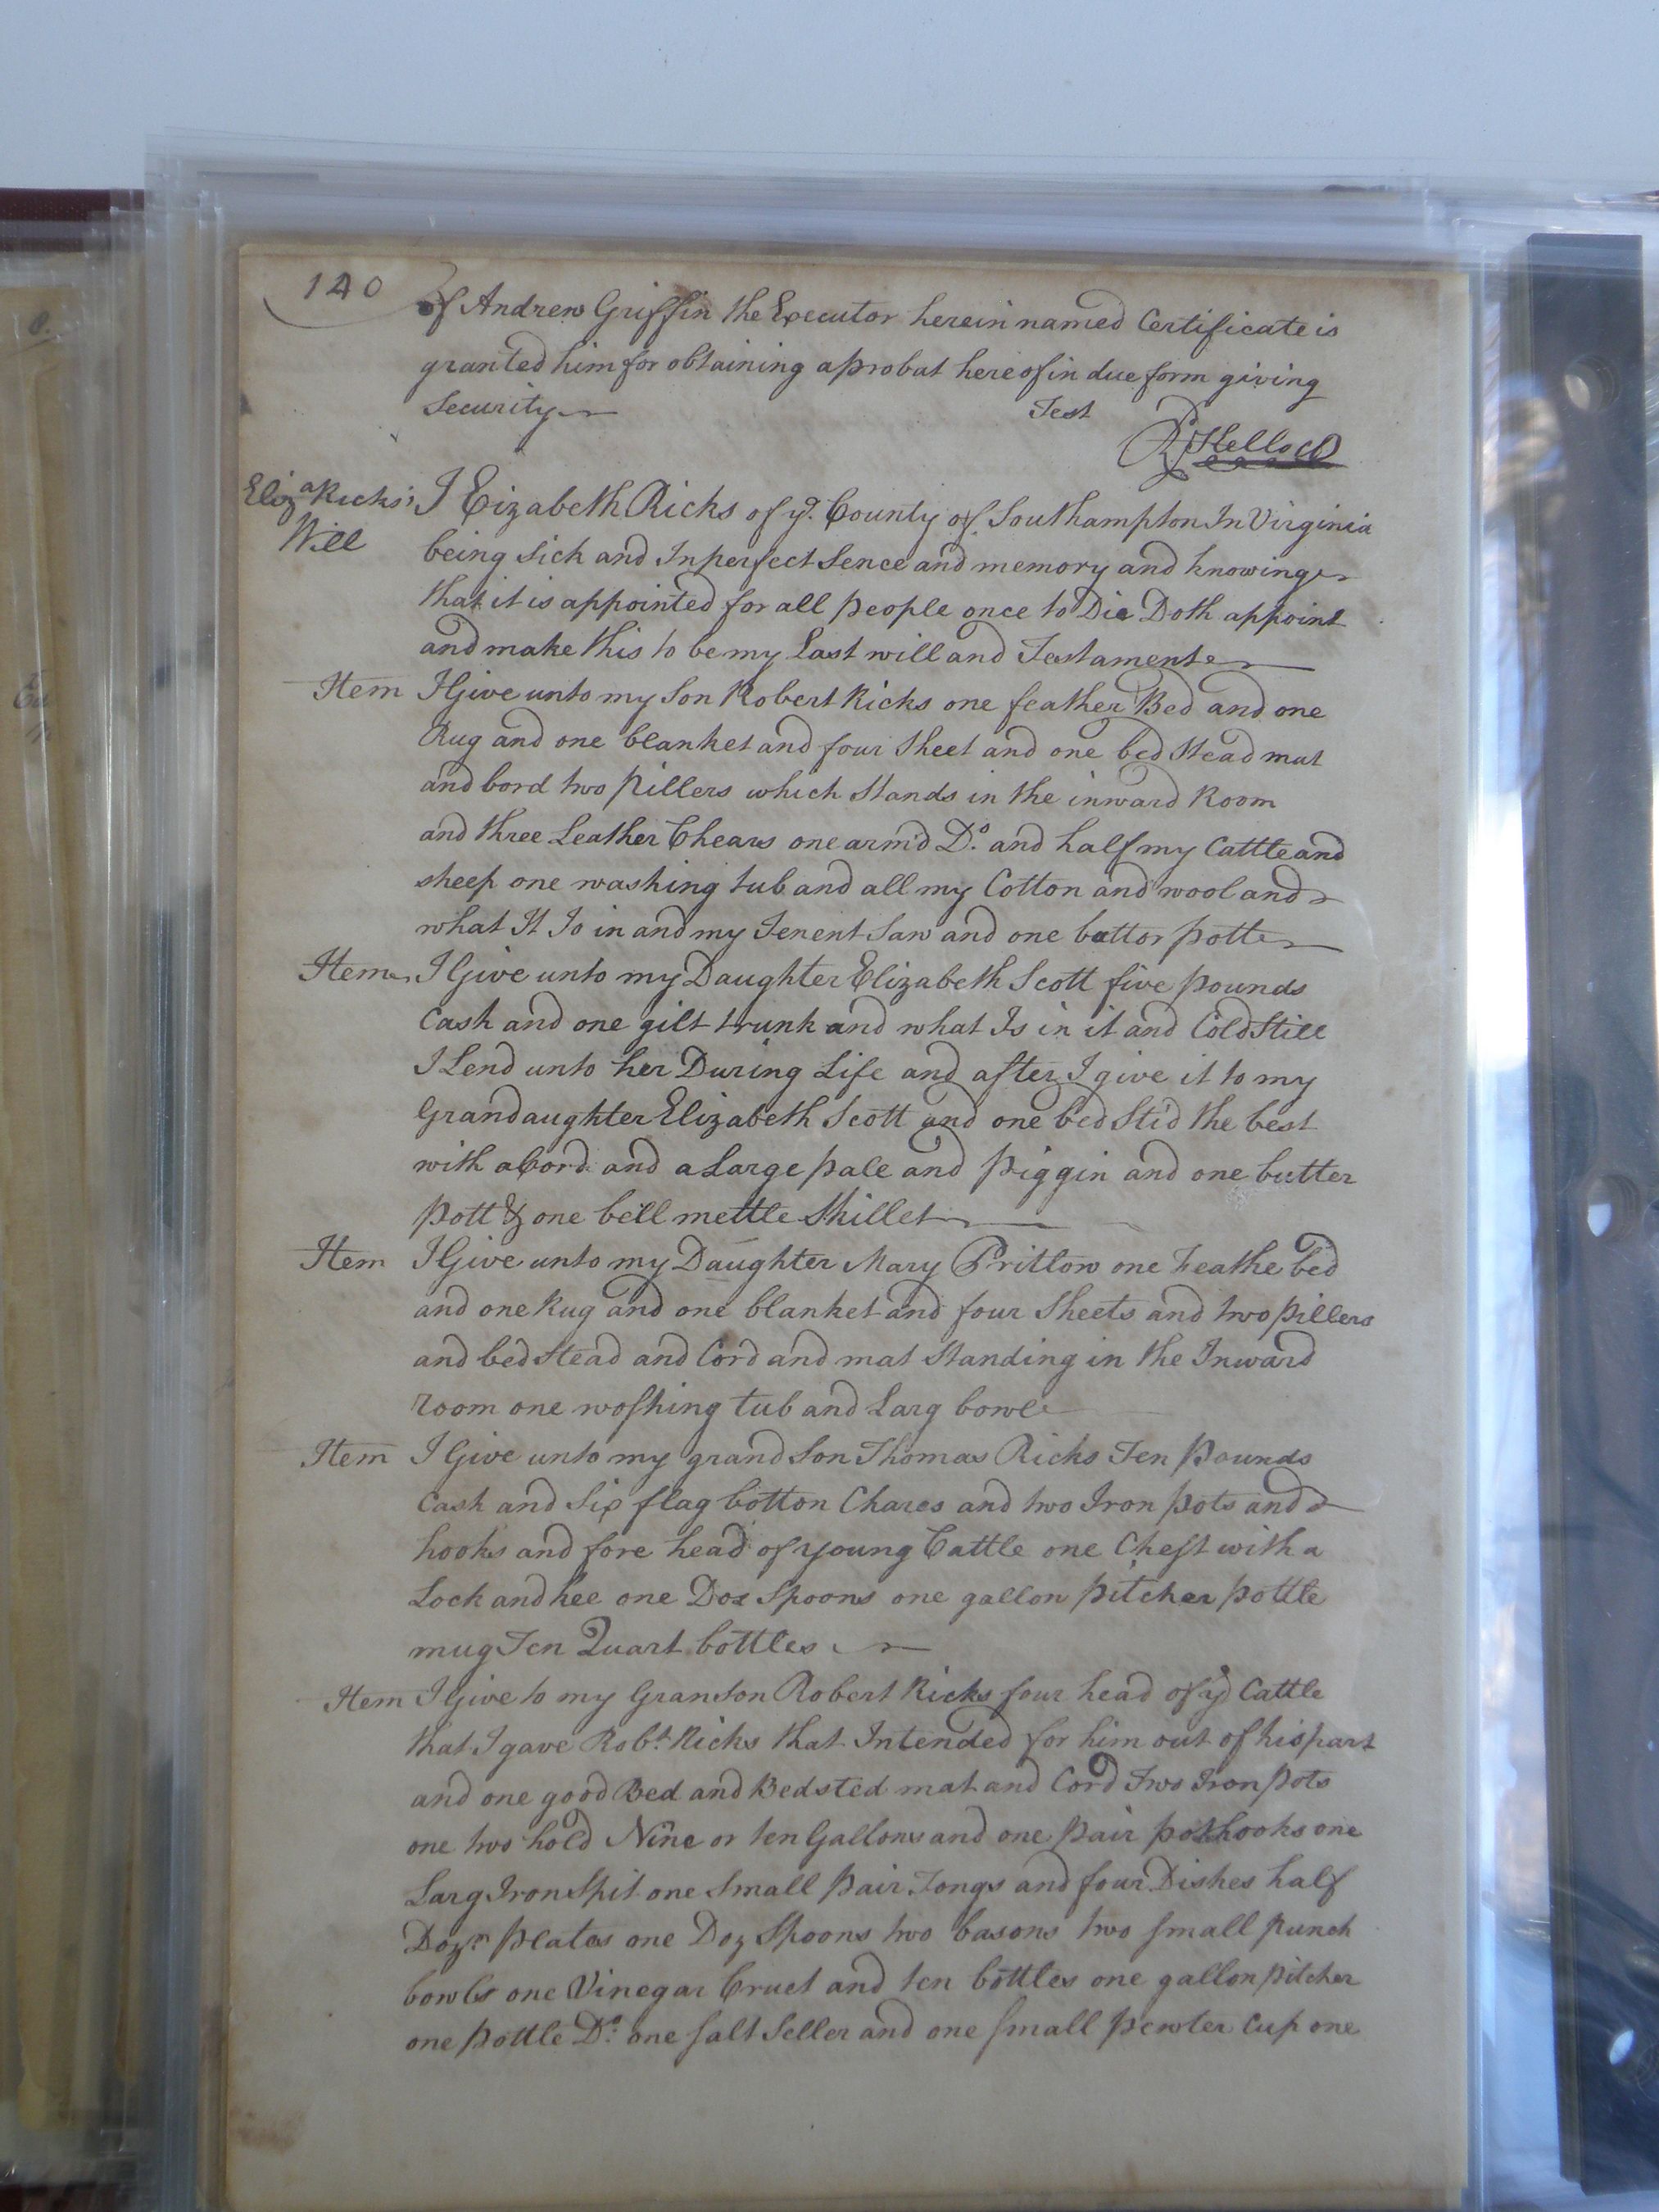 140
of Andrew Griffin the Executor herein named Certificate is
granted him for obtaining a probat hereof in due form giving
Security
Test
Eliz.a Ricks's
Will
I Eizabeth Ricks of ye. County of Southampton In Virginia
being Sick and In perfect Sence and memory and knowing
that it is appointed for all people once to Die Doth appoint
and make this to be my Last will and Testament
Item I Give unto my Son Robert Ricks one feather Bed and one
Rug and one blanket and four Sheet and one bed Stead mat
and bord two pillers which Stands in the inward Room
and three Leather Chears one arm'd Do. and half my Cattle and
sheep one washing tub and all my Cotton and wool and
what It Is in and my Tenent Saw and one buttor pott
Item I Give unto my Daughter Elizabeth Scott five pounds
Cash and one gilt trunk and what Is in it and Cold Still
I Lend unto her During Life and after I give it to my
Grandaughter Elizabeth Scott and one bed Sted the best
with a Cord and a Large pale and piggin and one butter
pott & one bell mettle Skillet
Item I Give unto my Daughter Mary Pritlow one Feathe bed
and one Rug and one blanket and four Sheets and two pillers
and bed Stead and Cord and mat Standing in the Inward
room one woshing tub and Larg bowl
Item I Give unto my grand Son Thomas Ricks Ten Pounds
Cash and Six flag botton Chares and two Iron pots and
hooks and fore head of young Cattle one Chest with a
Lock and kee one Doz Spoons one gallon pitcher pottle
mug Ten Quart bottles
Item I Give to my Granson Robert Ricks four head of ye Cattle
that I gave Robt. Ricks that Intended for him out of his part
and one good Bed and Bedsted mat and Cord Two Iron pots
one two hold Nine or ten Gallons and one pair pothooks one
Larg Iron Spit one Small pair Tongs and four Dishes half
Dozn. plates one Doz Spoons two basons two small punch
bowls one Vinegar Cruet and ten bottles one gallon pitcher
one pottle Do. one salt Seller and one small pewter Cup one